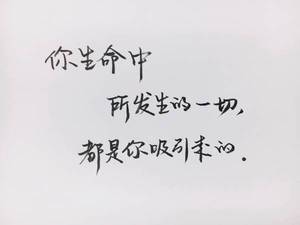 你生命中
所发生的一切，
都是你吸引来的.